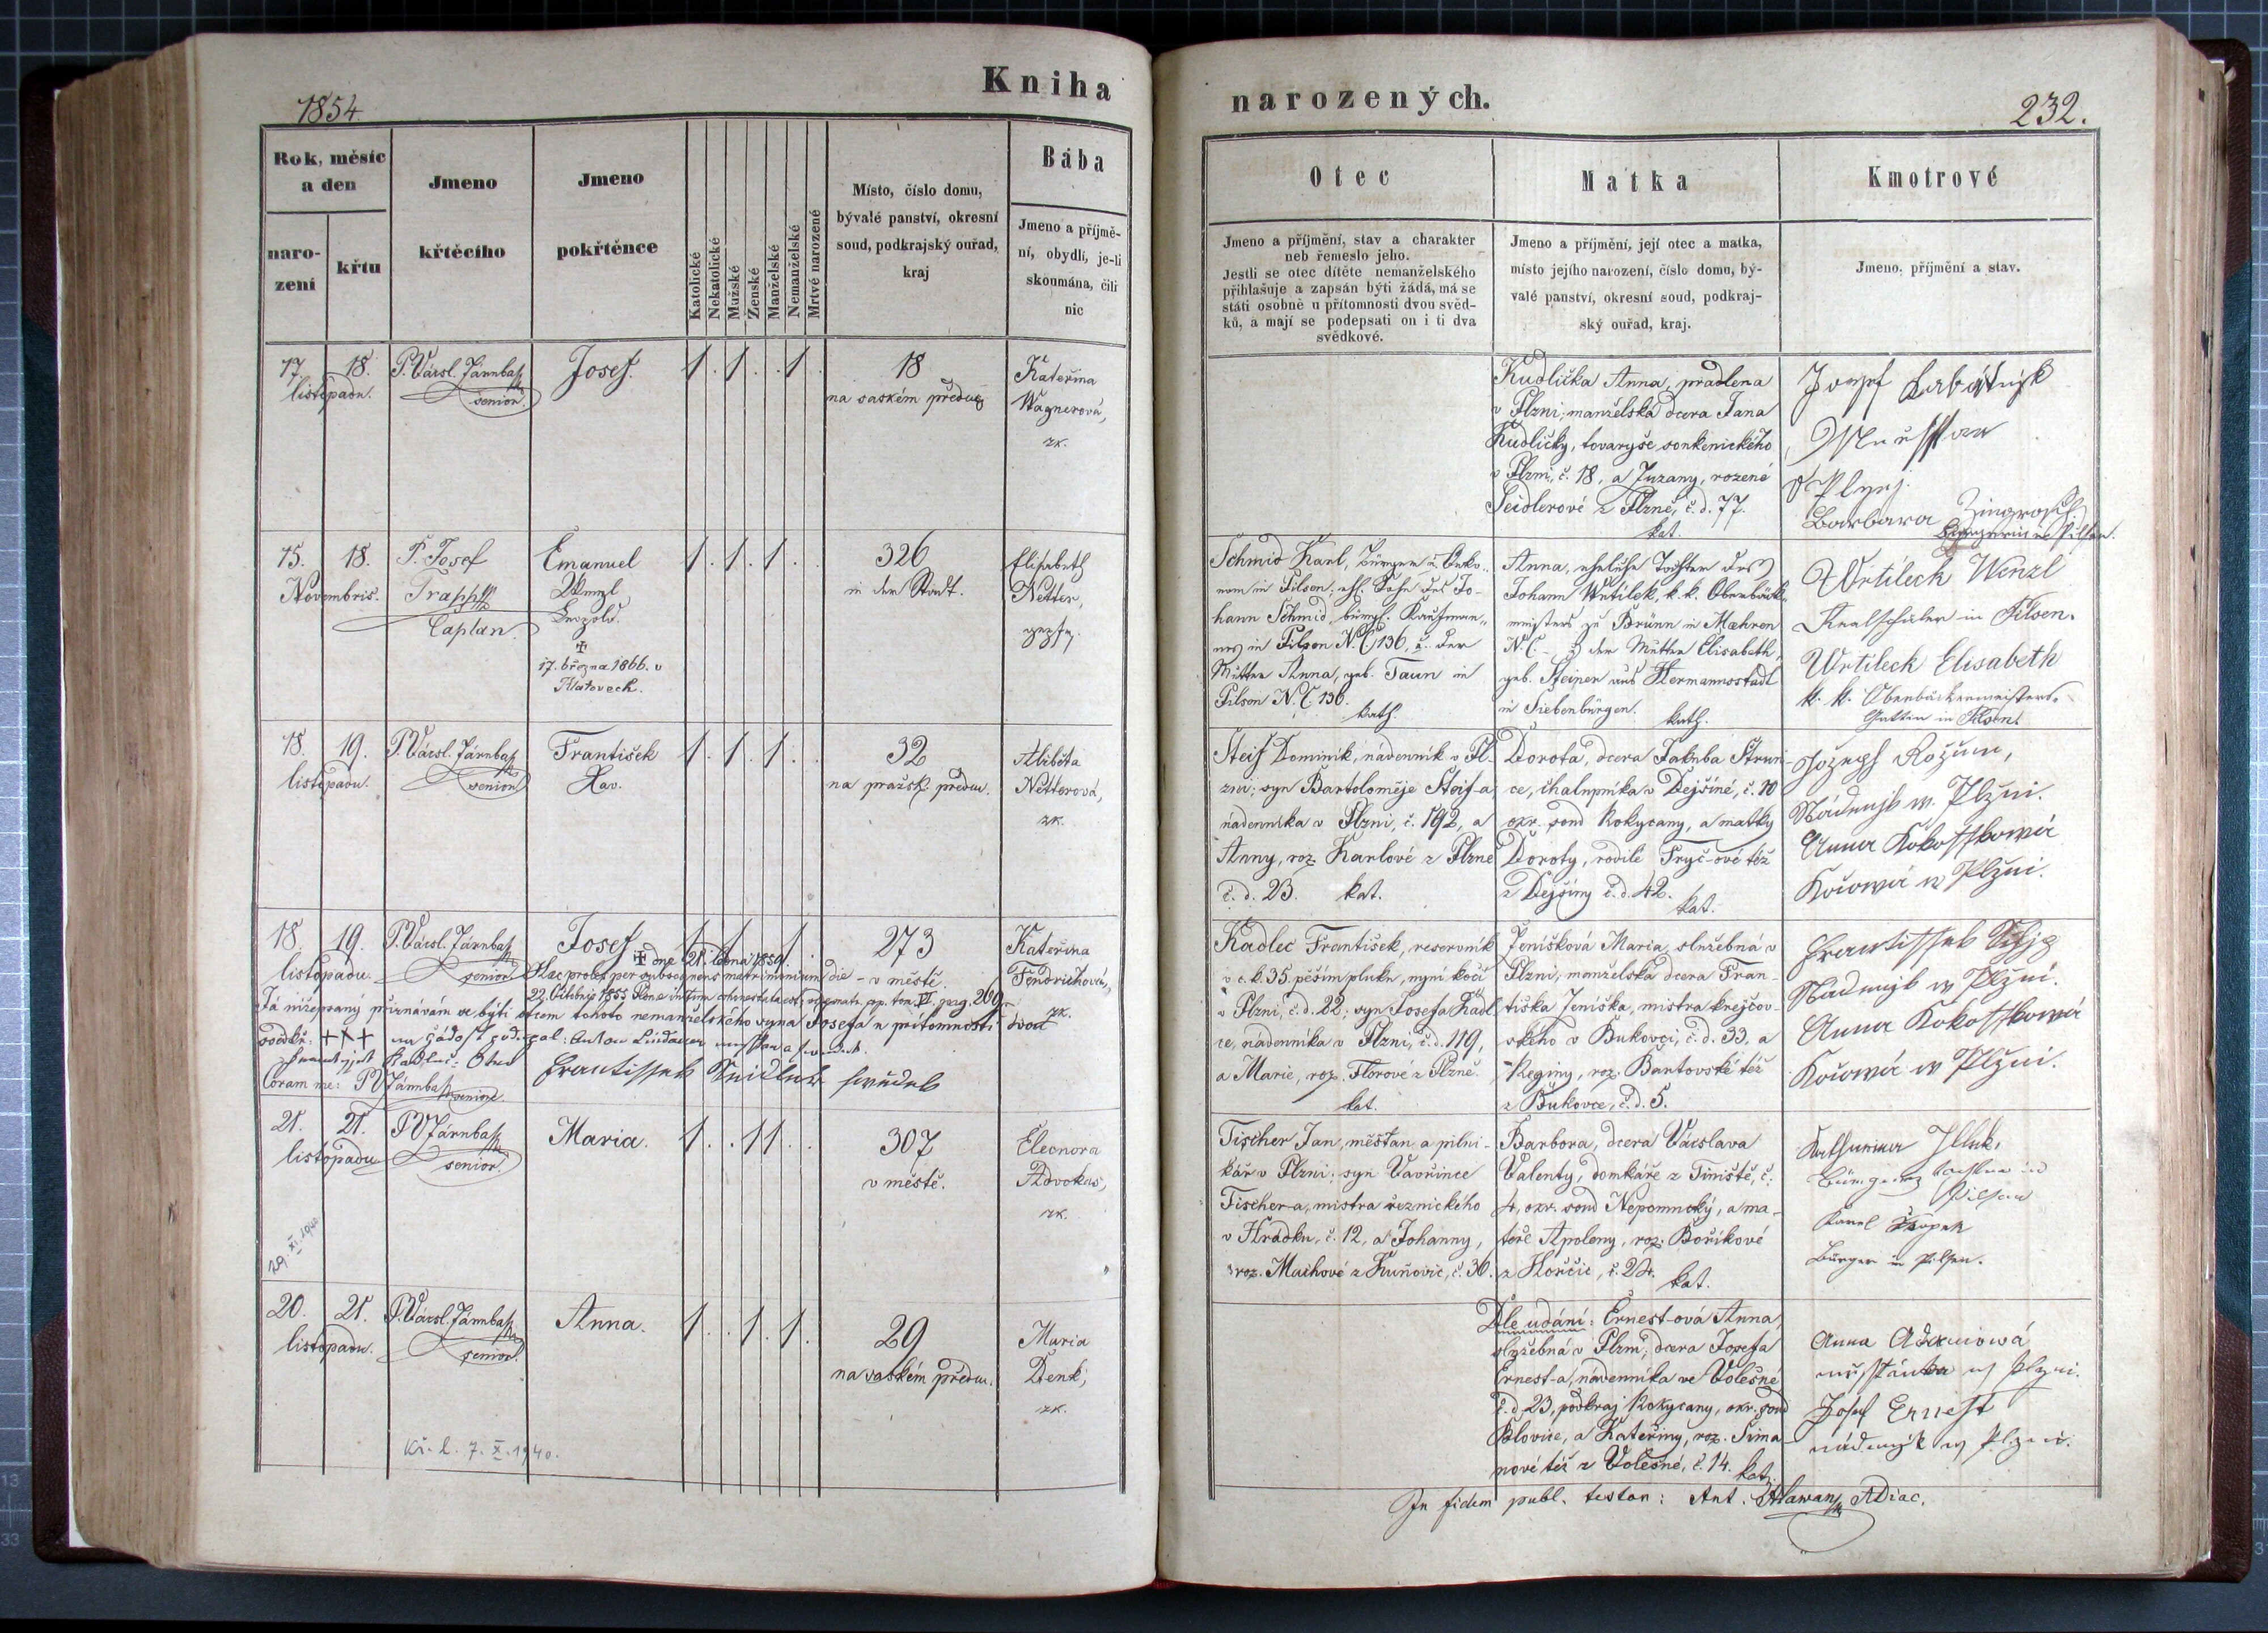 Kniha
narozených.
1854
232.
Rok, měsíc
a den
naro-
zení
křtu
Jmeno
křtěcího
Jmeno
pokřtěnce
Katolické
Nekatolické
Mužské
Ženské
Manželské
Nemanželské
Mrtvé narozené
Místo, číslo domu,
bývalé panství, okresní
soud, podkrajský ouřad,
kraj
Bába
Jmeno a příjmě-
ní, obydlí, je-li
skoumána, čili
nic
Otec
Jmeno a příjmění, stav a charakter
neb řemeslo jeho.
Jestli se otec dítěte nemanželského
přihlašuje a zapsán býti žádá, má se
státi osobně u přítomnosti dvou svěd-
ků, a mají se podepsati on i ti dva
svědkové.
Matka
Jmeno a příjmění, její otec a matka,
místo jejího narození, číslo domu, bý-
valé panství, okresní soud, podkraj-
ský ouřad, kraj.
Kmotrové
Jmeno, příjmění a stav.
17. 18.
listopadu.
senior.
Josef.
1. 1. 1.
18
na saském předm.
Kateřina
Wagnerová,
zk.
Kudlička Anna, pradlena
v Plzni; manželská dcera Jana
Kudličky, tovaryše soukenického
v Plzni, č. 18, a Zuzany, rozené
Seidlerové z Plzně, č. d. 77.
kat.
Josef
Barbara
15. 18.
Novembris.
P. Josef
Trappl
Caplan.
Emanuel
Wenzl
Leopold.
17. března 1866. v
Klatovech.
1. 1. 1.
326
in der Stadt.
Elisabeth
Netter,
Schmid Karl, Bürger u. Oeko-
nom in Pilsen; ehl. Sohn des Jo-
hann Schmid, bürgl. Kaufman-
nes in Pilsen N. C. 136, u. der
Mutter Anna, geb. Taun in
Pilsen N. C. 136.
kath.
Anna, eheliche Tochter des
Johann Wrtilek, k. k. Oberbäck-
meisters zu Brünn in Mæhren
N. C. – u der Mutter Elisabeth,
geb. Steiner aus Hermannstadt
in Siebenbürgen. kath.
Wrtileck Wenzl
Realschüler in Pilsen.
Wrtileck Elisabeth
k. k. Oberbäckermeisters-
Gattin in Pilsen.
18. 19.
listopadu.
senior
František
Xav.
1. 1. 1.
32
na pražsk. předm.
Alžběta
Netterová,
zk.
Steif Dominik, nádenník v Pl-
zni; syn Bartoloměje Steif-a
nádenníka v Plzni, č. 192, a
Anny, roz. Karlové z Plzně
č. d. 23. kat.
Dorota, dcera Jakuba Strun-
ce, chalupníka v Dejšině, č. 10
okr. soud Rokycany, a matky
Doroty, rodilé Fryč-ové též
z Dejšiny č. d. 42.
kat.
Jozeph Rozum,
Nádenjk w Plzni.
Anna Kokosskowá
w Plzni.
18. 19.
listopadu.
senior
Josef
dne 21. ledna 1859.
1 1 1
273
v městě.
Kateřina
Fendrichová,
zk.
Hac proles per subsequens matrimonium die
22. Octobris 1855 Plsnæ initum
pag. 269.
Já nížepsaný přiznávám se býti otcem tohoto nemanželského syna Josefa u přítomnosti dvou
svědků: +++ na žádost podepsal: Anton Lindauer
Kadlec Otec
Frantissek
Coram me:
senior.
Kadlec František, reservník
v c. k. 35. pěším pluku, nyní kočí
v Plzni, č. d. 22; syn Josefa Kadl-
ce, nádenníka v Plzni, č. d. 119,
a Marie, roz. Florové z Plzně.
kat.
Jeníšková Maria, služebná v
Plzni; manželská dcera Fran-
tiška Jeníška, mistra krejčov-
ského v Bukovci, č. d. 33, a
Reginy, roz. Bartovské též
z Bukovce, č. d. 5.
Frantissek
Nádenjk w Plzni.
Anna Kokosskowá
w Plzni.
21. 21.
listopadu
senior.
Maria.
1. . 1 1
307
v městě.
Eleonora
Advokas,
zk.
29. XI. 1940
Fischer Jan, měšťan a pilní-
kář v Plzni; syn Vavřince
Fischer-a, mistra řeznického
v Hrádku, č. 12, a Johanny,
roz. Machové z Kuňovic, č. 36.
Barbora, dcera Vácslava
Valenty, domkáře z Tiniště, č.
4, okr. soud Nepomucký, a ma-
teře Apoleny, roz. Boříkové
z Horčic, č. 24. kat.
Katharina
Pilsen
Karel
Bürger in Pilsen.
20. 21.
listopadu.
senior.
Anna.
1. . 1. 1.
29
na saském předm.
Maria
Denk,
zk.
Kř. l. 7. X. 1940.
Dle udání: Ernest-ová Anna,
služebná v Plzni; dcera Josefa
Ernest-a, nádenníka ve Volešné
č. d. 23, podkraj Rokycany, okr. soud
Blovice, a Kateřiny, roz. Šima-
nové též z Volešné, č. 14. kat.
Anna Adamowá
w Plzni.
Josef Ernest
nádenjk w Plzni.
In fidem publ. testor: Ant. Hlawan, ADiac.